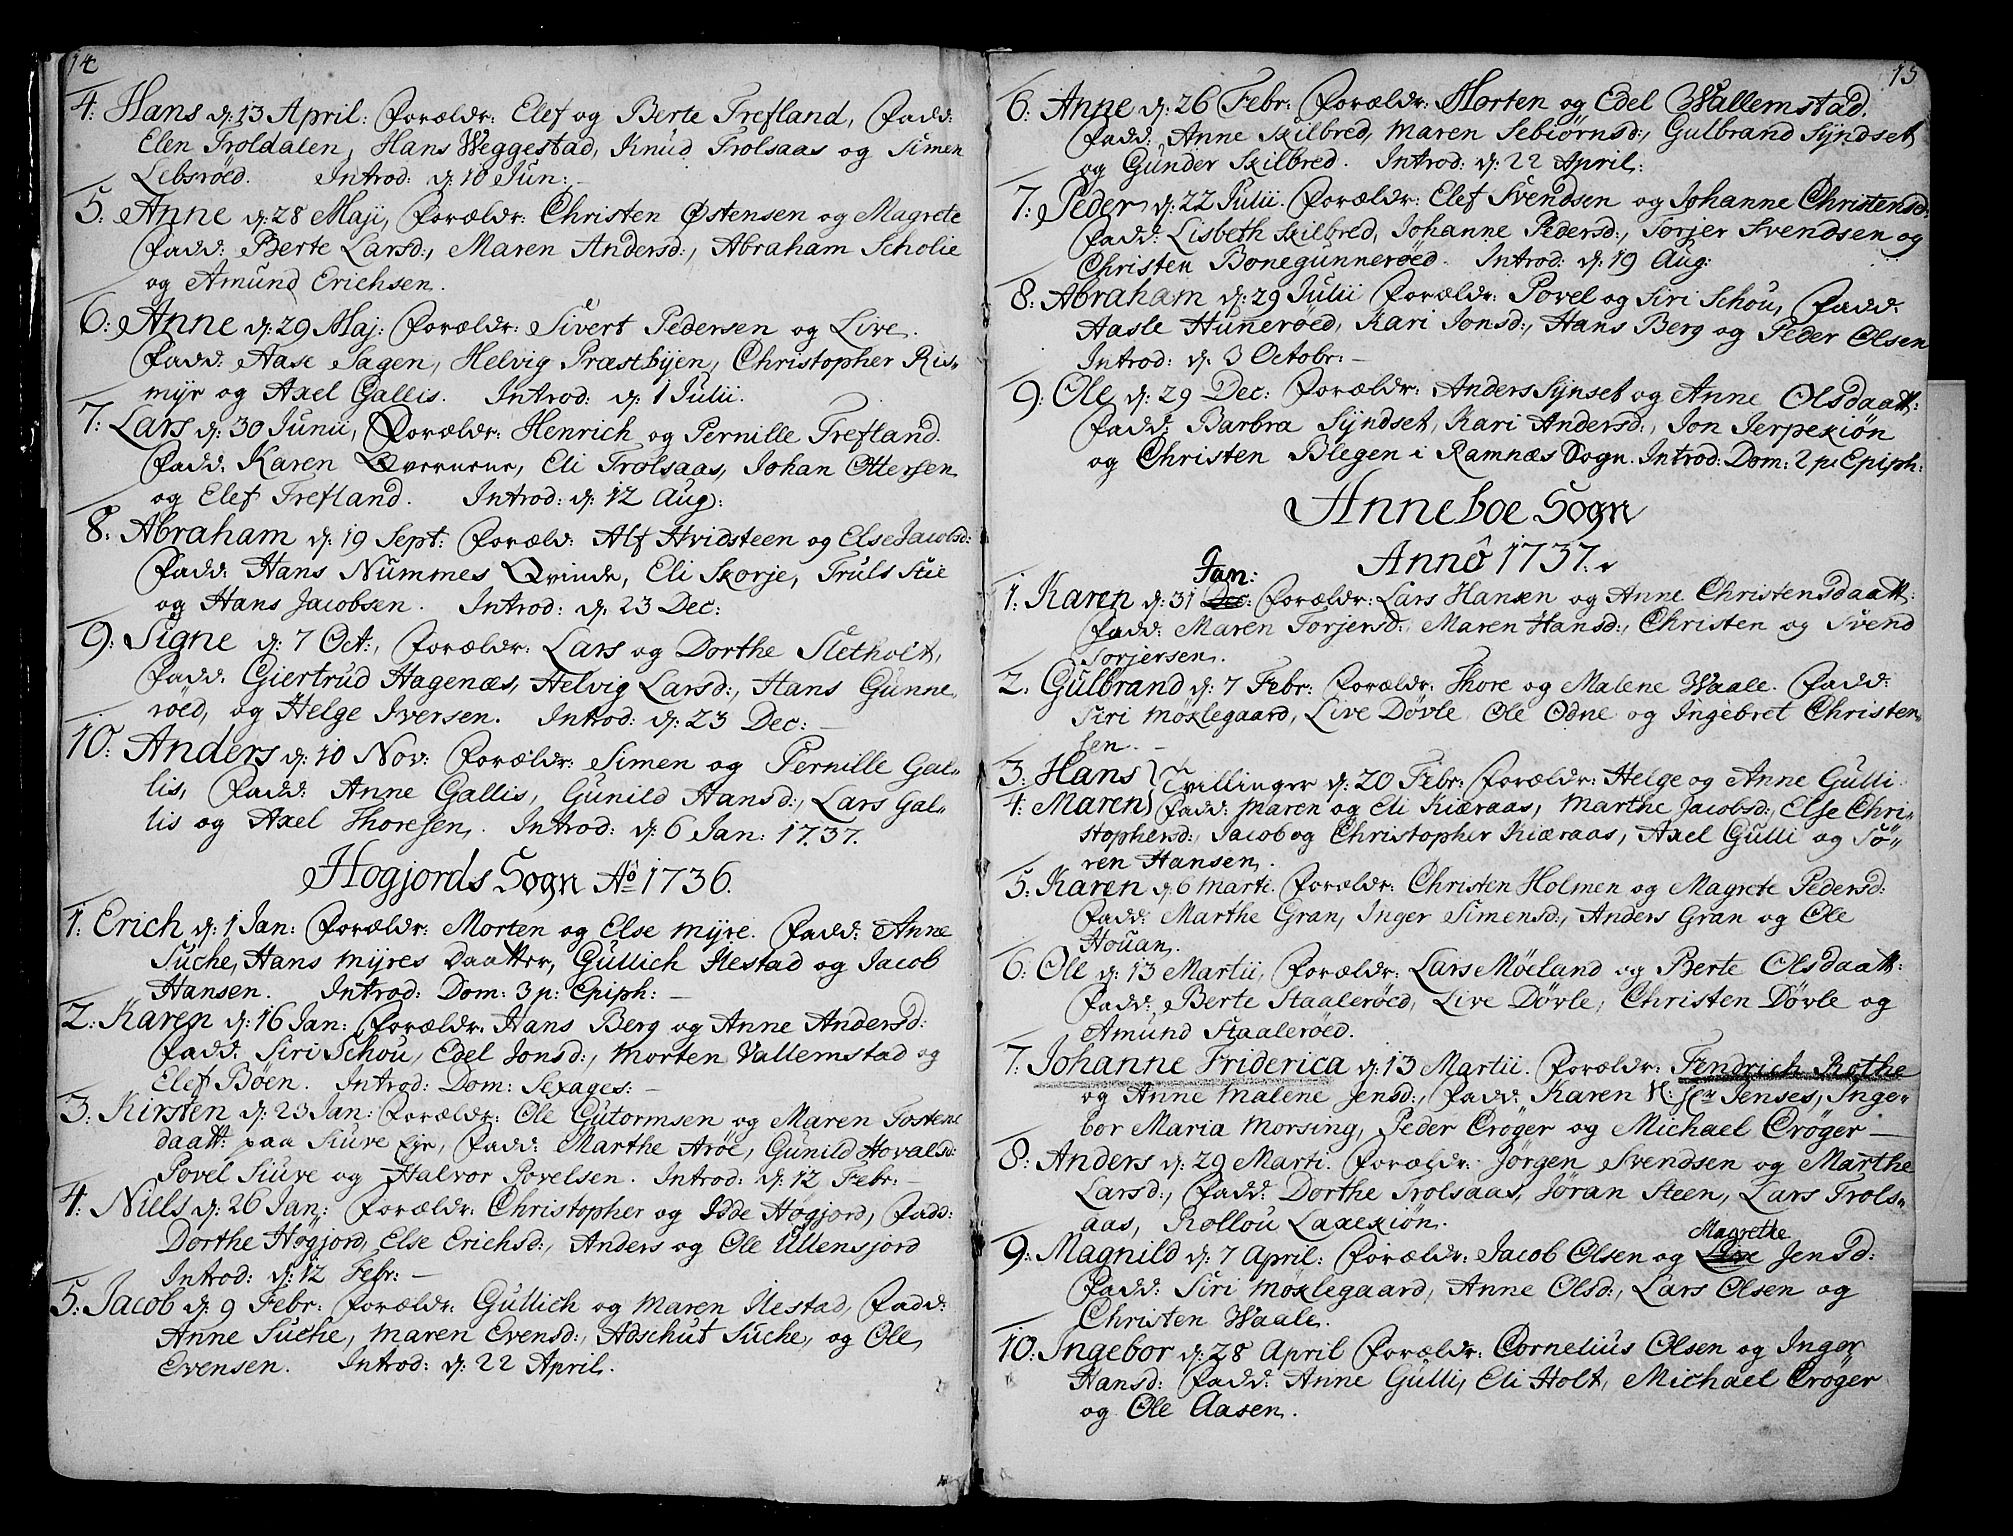 14
4: Hans d: 13 April: Forældr: Elef og Berte Trefland, Fadd:
Elen Troldalen, Hans Weggestad, Knud Trolsaas og Simen
Lebsröed. Introd: d: 10 Jun:
5: Anne d: 28 Maji, Forældr: Christen Østensen og Magrete
Fadd: Berte Larsd:, Maren Andersd:, Abraham Scholie
og Amund Erichsen.
6: Anne d: 29 Maj: Forældr: Sivert Pedersen og Live.
Fadd: Aase Sagen, Helvig Præstbyen, Christopher Ris-
myr og Axel Gallis. Introd: d: 1 Julii.
7: Lars d: 30 Junii, Forældr: Henrich og Pernille Trefland.
Fadd: Karen Qvernene, Eli Trolsaas, Johan Ottersen
og Elef Trefland. Introd: d: 12 Aug:
8: Abraham d: 19 Sept: Foræld: Alf Hvidsteen og Else Jacobsd:
Fadd: Hans Nummes Qvinde, Eli Skorje, Truls Stie
og Hans Jacobsen. Introd: d: 23 Dec:
9: Signe d: 7 Oct:, Forældr: Lars og Dorthe Sletholt,
Fadd: Giertrud Hagenæs, Helvig Larsd:, Hans Gunne-
röed, og Helge Iversen. Introd: d: 23 Dec:
10: Anders d: 10 Nov: Forældr: Simen og Pernille Gal-
lis, Fadd: Anne Gallis, Gunild Hansd:, Lars Gal-
lis og Axel Thoresen. Introd: d: 6 Jan: 1737.
Hogjords Sogn Aö 1736.
1: Erich d: 1 Jan: Forældr: Morten og Else Myre. Fadd: Anne
Suche, Hans Myres Daatter, Gullich Ilestad og Jacob
Hansen. Introd: Dom: 3 p: Epiph:
2: Karen d: 16 Jan: Forældr: Hans Berg og Anne Andersd:
Fadd: Siri Schou, Edel Jonsd:, Morten Vallemstad og
Elef Böen. Introd: Dom: Sexages:
3: Kirsten d: 23 Jan: Forældr: Ole Gutormsen og Maren Tostens
daatt: paa Siuve Eje, Fadd: Marthe Aröe, Gunild Hovalsd:
Povel Siuve og Halvor Povelsen. Introd: d: 12 Febr:
4: Niels d: 26 Jan: Forældr: Christopher og Idde Högjord, Fadd:
Dorthe Högjord, Else Erichsd:, Anders og Ole Ullensjord
Introd: d: 12 Febr:
5: Jacob d: 9 Febr: Forældr: Gullich og Maren Ilestad, Fadd:
Anne Suche, Maren Evensd:, Adschut Suche, og Ole
Evensen. Introd: d: 22 April.
15
6: Anne d: 26 Febr: Forældr: Morten og Edel Wallemstad.
Fadd: Anne Skilbred, Maren Sebiörnsd:, Gulbrand Syndset
og Gunder Skilbred. Introd: d: 22 April:
7: Peder d: 22 Julii. Forældr: Elef Svendsen og Johanne Christensd:
Fadd: Lisbeth Skilbred, Johanne Pedersd:, Torjer Svendsen og
Christen Bonegunneröed. Introd: d: 19 Aug:
8: Abraham d: 29 Julii Forældr: Povel og Siri Schou, Fadd:
Aasle Huneröed, Kari Jonsd:, Hans Berg og Peder Olsen
Introd: d: 3 Octobr:
9: Ole d: 29 Dec: Forældr: Anders Synset og Anne Olsdaatt:
Fadd: Barbra Syndset, Kari Andersd:, Jon Jerpekiön
og Christen Blegen i Ramnæs Sogn. Introd: Dom: 2 p: Epiph:
Anneboe Sogn
Annô 1737.
Jan:
1: Karen d: 31 Dec: Forældr: Lars Hansen og Anne Christensdaatt:
Fadd: Maren Torjersd: Maren Hansd:, Christen og Svend
Torjersen.
2: Gulbrand d: 7 Febr: Forældr: Thore og Malene Waale. Fadd:
Siri Möklegaard, Live Dövle, Ole Odne og Ingebret Christen-
sen.
3: Hans } Tvillinger d: 20 Febr: Forældr: Helge og Anne Gulli
4: Maren } Fadd: Maren og Eli Kiæraas, Marthe Jacobsd:, Else Chri-
stophersd:, Jacob og Christopher Kiæraas, Axel Gulli og Sö-
ren Hansen.
5: Karen d: 6 Marti. Forældr: Christen Holmen og Magrete Pedersd:
Fadd: Marthe Gran, Inger Simensd:, Anders Gran og Ole
Houan.
6: Ole d: 13 Martii, Forældr: Lars Möeland og Berte Olsdaatt:
Fadd: Berte Staaleröed, Live Dövle, Christen Dövle og
Amund Staaleröed.
7: Johanne Friderica d: 13 Martii. Forældr: Fendrich Rothe
og Anne Malene Jensd:, Fadd: Karen Jenses, Inge-
bor Maria Morsing, Peder Cröger og Michael Cröger
8: Anders d: 29 Marti. Forældr: Jörgen Svendsen og Marthe
Larsd:, Fadd: Dorthe Trolsaas, Jöran Steen, Lars Trols-
aas, Rollou Laxekiön.
Magrethe
9: Magnild d: 7 April: Forældr: Jacob Olsen og Live Jensd:
Fadd: Siri Möklegaard, Anne Olsd:, Lars Olsen og
Christen Waale.
10: Ingebor d: 28 April Forældr: Cornelius Olsen og Inger
Hansd: Fadd: Anne Gulli, Eli Holt, Michael Cröger
og Ole Aasen.